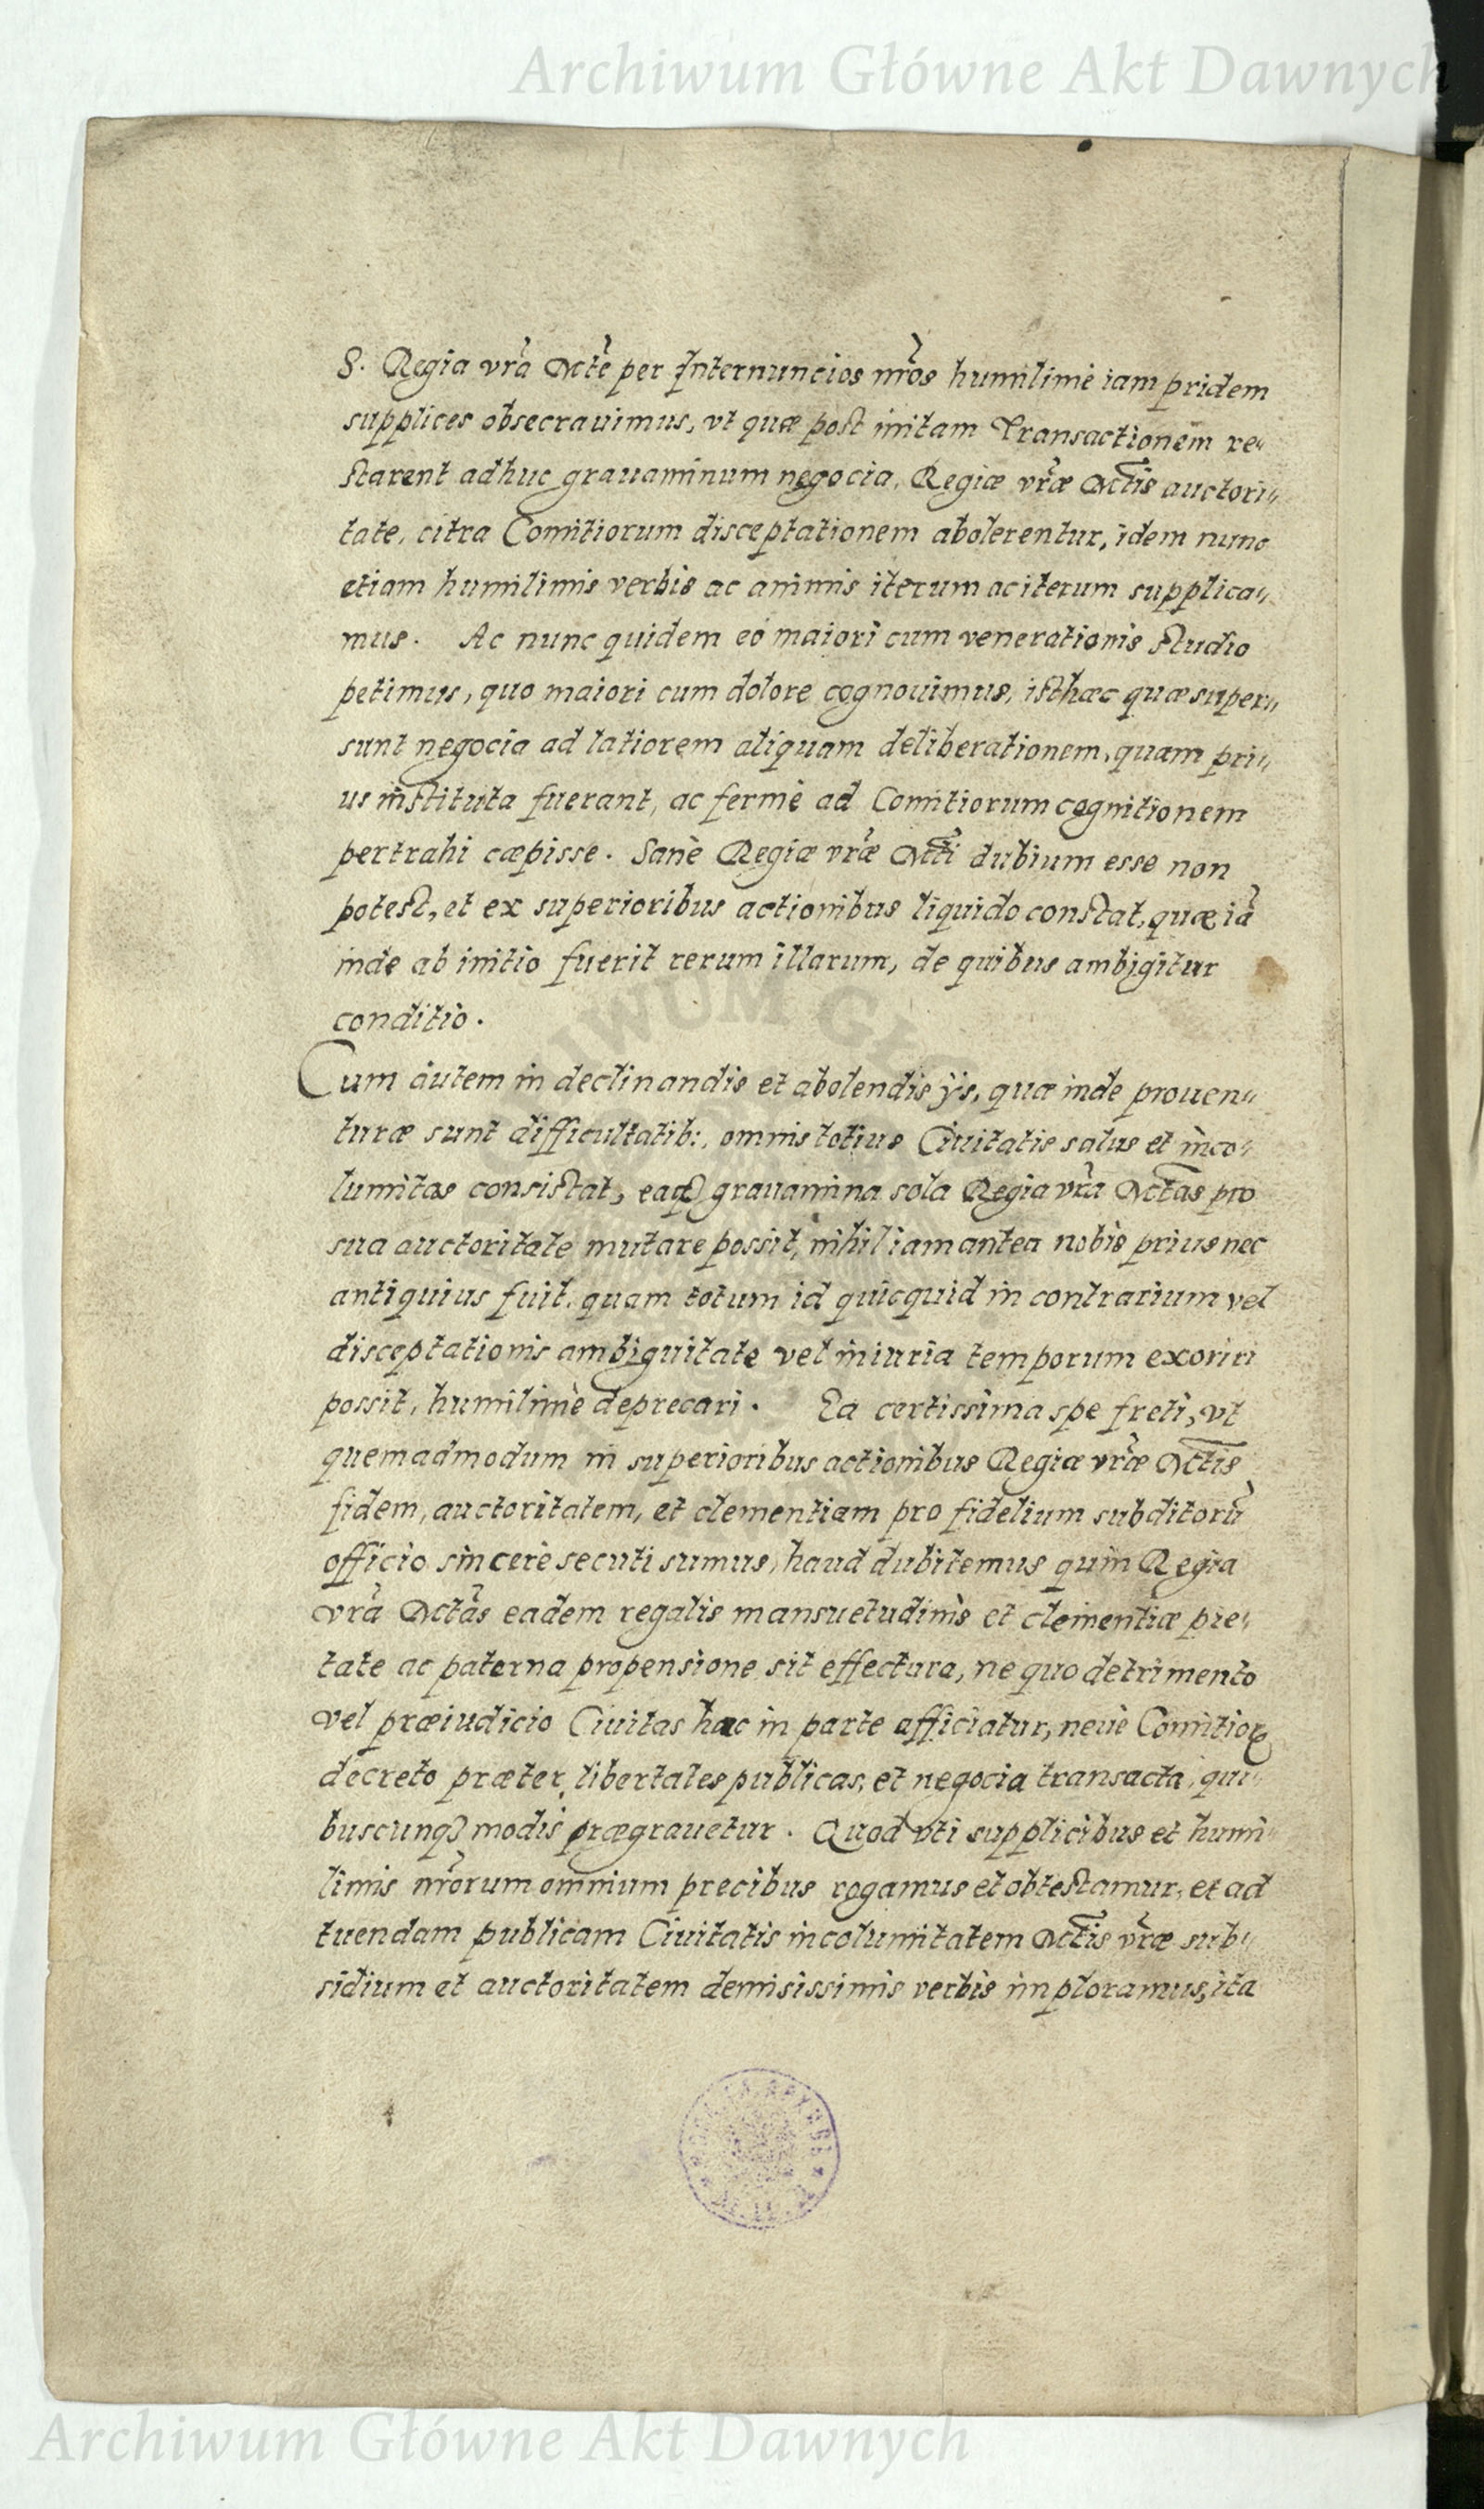 Archiwum Główne Akt Dawnych
S. Regia vr̃a Mctẽ per Internuncios nr̃os humilimè iam pridem
supplices obsecrauimus, vt quæ post initam Transactionem re„
starent adhuc grauaminum negocia, Regiæ vr̃æ Mctis auctori„
tate, citra Comitiorum disceptationem abolerentur, idem nunc
etiam humilimis verbis ac animis iterum ac iterum supplica„
mus. Ac nunc quidem eò maiori cum venerationis studio
petimus, quo maiori cum dolore cognouimus, isthæc quæ super„
sunt negocia ad latiorem aliquam deliberationem, quam pri„
us instituta fuerant, ac fermè ad Comitiorum cognitionem
pertrahi cæpisse. Sanè Regiæ vr̃æ Mcti dubium esse non
potest, et ex superioribus actionibus liquido constat, quæ iã
inde ab initio fuerit rerum illarum, de quibus ambigitur
conditio.
Cum autem in declinandis et abolendis ijs, quæ inde prouen„
turæ sunt difficultatib:, omnis totius Ciuitatis salus et inco„
lumitas consistat, eaq₃ grauamina sola Regia vr̃a Mctas pro
sua auctoritate mutare possit, nihil iam antea nobis prius nec
antiquius fuit, quam totum id quicquid in contrarium vel
disceptationis ambiguitate vel iniuria temporum exoriri
possit, humilimè deprecari. Ea certissima spe freti, vt
quemadmodum in superioribus actionibus Regiæ vr̃æ Mctis
fidem, auctoritatem, et clementiam pro fidelium subditorũ
officio sincerè secuti sumus, haud dubitemus quin Regia
vr̃a Mctas eadem regalis mansuetudinis et clementiæ pie„
tate ac paterna propensione sit effectura, ne quo detrimento
vel præiudicio Ciuitas hac in parte afficiatur, neuè Comitioꝝ
decreto præter libertates publicas, et negocia transacta, qui„
buscunq₃ modis prægrauetur. Quod vti supplicibus et humi„
limis nr̃orum omnium precibus rogamus et obtestamur, et ad
tuendam publicam Ciuitatis incolumitatem Mctis vr̃æ sub„
sidium et auctoritatem demisissimis verbis imploramus, ita
Archiwum Główne Akt Dawnych